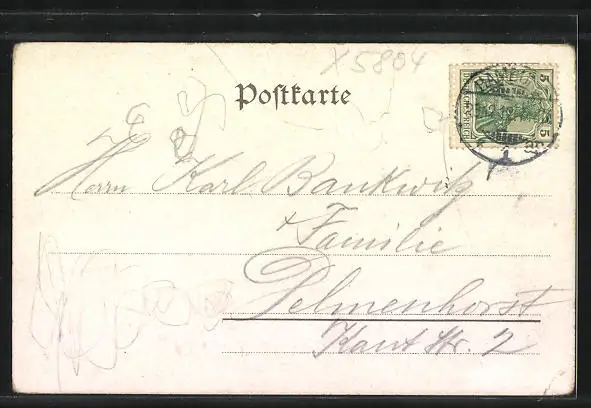 X5804
Postkarte
5 5
Herrn Karl Bankwitz
+ Familie
Delmenhorst
Kant Str. 2